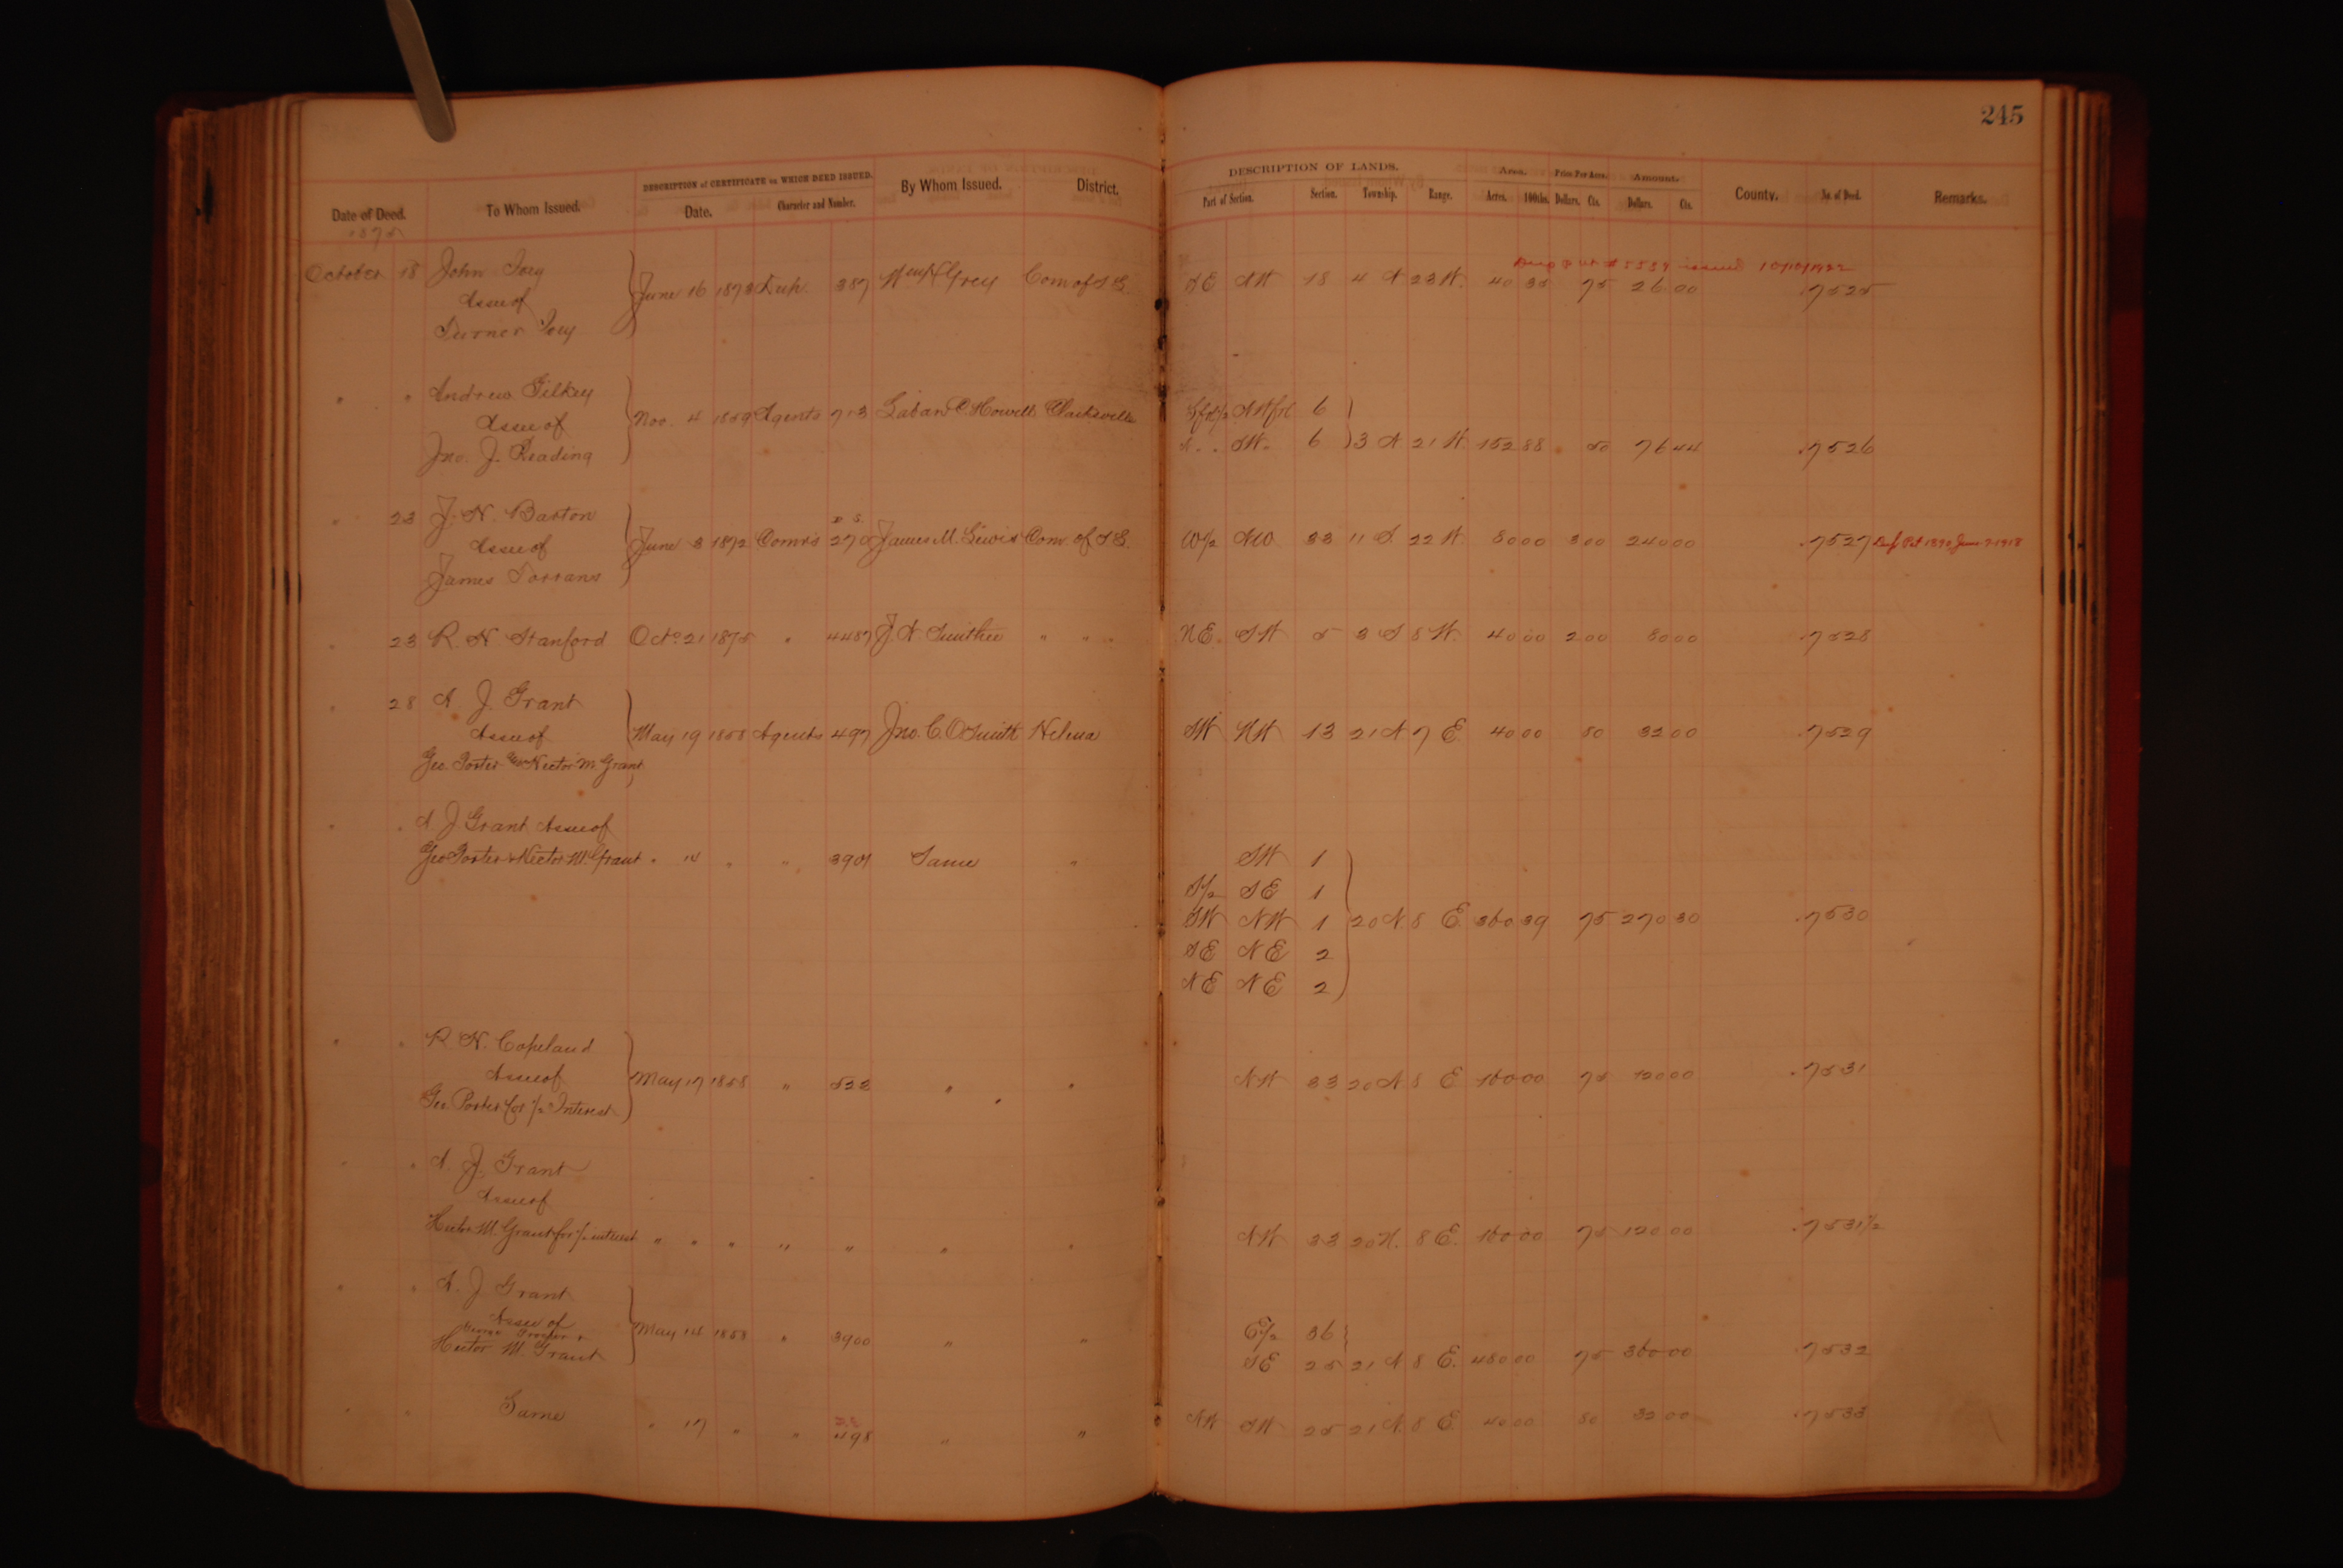 245
DESCRIPTION of CERTIFICATE on WHICH DEED ISSUED. DESCRIPTION OF LANDS. Area. Price Per Acre. Amount.
Date of Deed. To Whom Issued. Date. Character and Number. By Whom Issued. District. Part of Section. Section. Township. Range. Acres. 100ths. Dollars. Cts. Dollars. Cts. County. No. of Deed. Remarks.
1875
issued
October 18 John Ivey
Assee of
Turner Ivey
June 16 1873 Dup. 387 Wm H Grey Com of I &. SE NW 18 4 N 23 W. 40 35 75 26 00 7525
" " Andrew Gilkey
Assee of
Jno. J. Reading
Nov. 4 1859 Agents 713 Laban C. Howell Clarksville NWfrl 6
SW. 6 3 N 21 W. 152 88 50 76 44 7526
" 23 J. N. Barton
Assee of
James Torrans
June 3 1872 Comrs 270 James M. Lewis Com. of I &. W/2 NW 33 11 S. 22 W. 80 00 3 00 240 00 7527 Dup Pat 1890 June 7-1918
" 23 R. N. Stanford Oct. 21 1875 " 4487 J. N. Smithee " " " NE. SW 5 3 S 8 W. 40 00 2 00 80 00 7528
" 28 A. J. Grant
Assee of
Geo. Porter Hector M. Grant
May 19 1858 Agents 497 Jno. C. O Smith Helena SW NW 13 21 N 7 E. 40 00 80 32 00 7529
" " A. J Grant Assee of
Geo Porter & Hector M. Grant " 14 " " 3901 Same " SW 1
S/2 SE 1
SW NW 1 20 N. 8 E. 360 39 75 270 30 7530
SE NE 2
NE NE 2
" " R. N. Copeland
Assee of
Geo. Porter for 1/2 Interest
May 17 1858 " 523 " " NW 33 20 N. 8 E 160 00 75 120 00 7531
" " A. J. Grant
Assee of
Hector M. Grant for 1/2 interest " " " " " " " NW 33 20 N. 8 E. 160 00 75 120 00 7531 1/2
" " A. J Grant
Assee of
Hector M. Grant
May 14 1858 " 3900 " " E/2 36
SE 25 21 N 8 E. 480 00 75 360 00 7532
" " Same " 17 " " 498 " " NW SW 25 21 N. 8 E. 40 00 80 32 00 7533